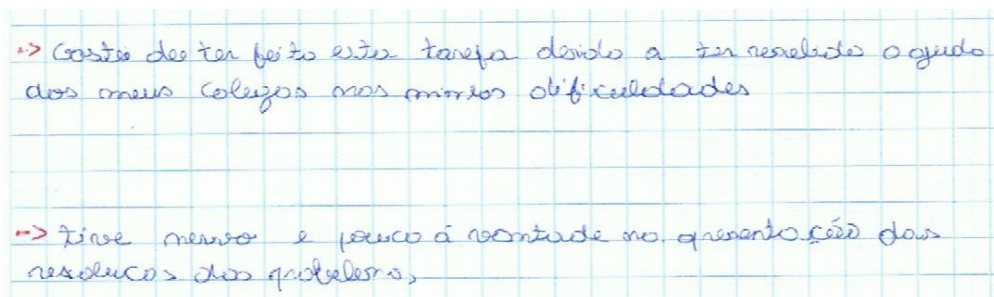 -> Gostei de ter feito esta tarefa devido a ter recebido a ajuda
dos meus colegas nas minhas dificuldades
-> tive nervo e pouco á vontade na apresentação das
resolucos dos problems,